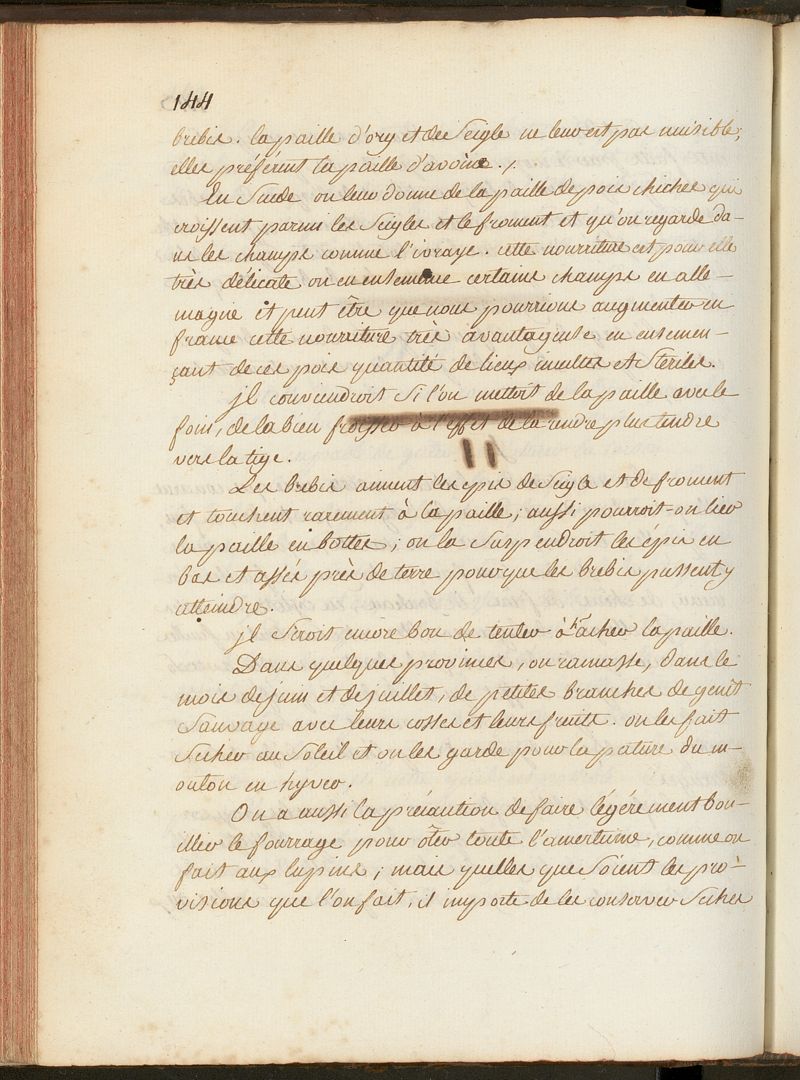 144
brebis. la paille d'org et de Seigle ne leur est pas nuisible,
elles préférent la paille d'avoine ./.
En Suede on leur donne de la paille de pois chiches qui
croissent parmi les Seigles et le froment et qu'on regarde da-
ns les champs comme l'ivraye. cette nourriture est pour elle
très délicate on en ensemence certains champs en alle-
magne et peut être que nous pourrions augmenter en
france cette nourriture très avantageuse en ensemen-
çant de ces pois quantité de lieux incultes et Steriles.
jl conviendroit Si l'on mettoit de la paille avec le
foin, de la bien froisser à l'effet de la rendre plus tendre
vers la tige.
Les brebis aiment les epis de Seigle et de froment
et touchent rarement à la paille ; aussi pourroit-on lier
la paille en bottes ; on la Suspendroit les épis en
bas et assés près de terre pour que les brebis pussent y
atteindre.
jl Seroit encore bon de tenter à hacher la paille.
Dans quelques provinces, on ramasse, dans le
mois de juin et de juillet, de petites branches de genêt
Sauvage avec leurs cosses et leurs fruits. on les fait
Secher au Soleil et on les garde pour la pature du m-
outon en hyver.
On a aussi la précaution de faire légérement bou-
illir le fourrage pour ôter toute l'amertume, comme on
fait aux lupins ; mais quelles que Soient les pro-
visions que l'on fait, il importe de les conserver Seches